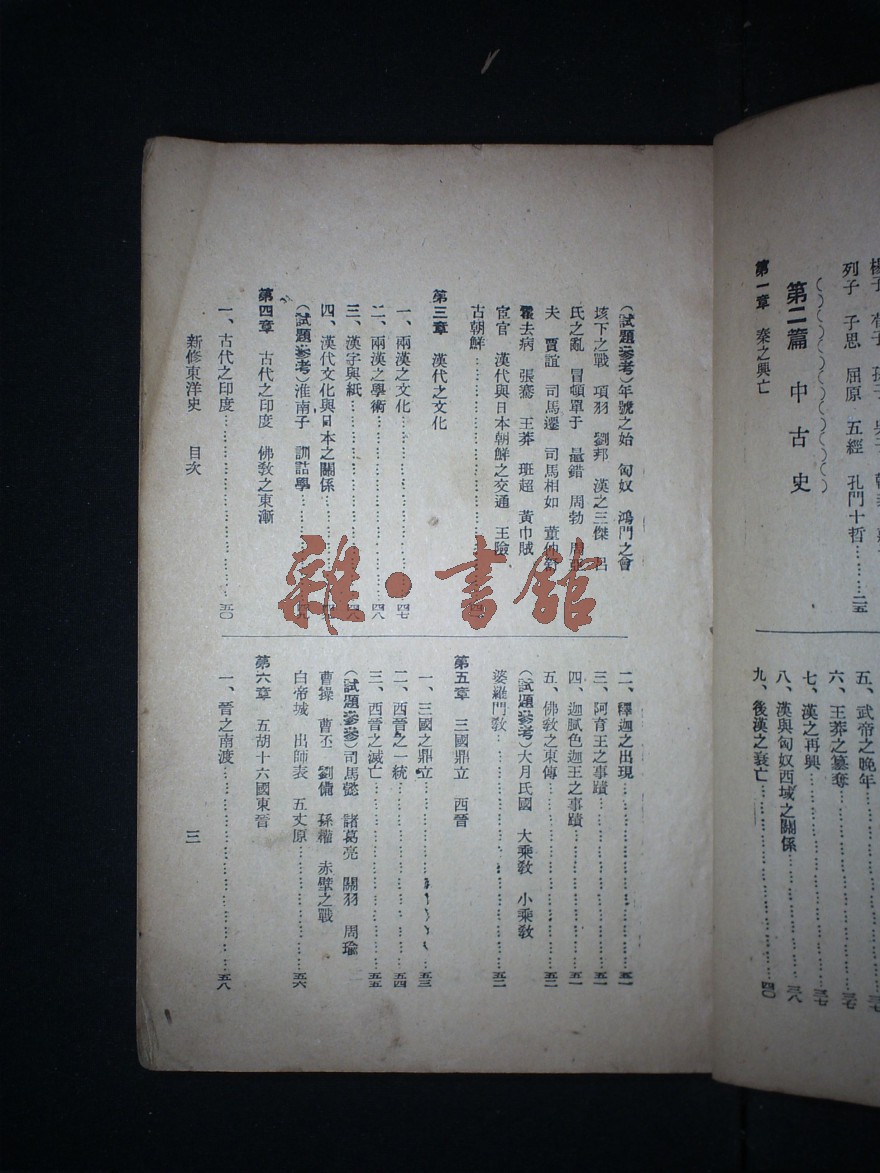 列子 子思 屈原 五經 孔門十哲………二五
第二篇 中古史
第一章 秦之興亡
五、武帝之晚年
六、王莽之篡奪………三七
七、漢之再興………三七
八、漢與匈奴西域之關係………三八
九、後漢之衰亡………四〇
(試題參考)年號之始 匈奴 鴻門之會
垓下之戰 項羽 劉邦 漢之三傑 呂
氏之亂 冒頓單于 鼂錯 周勃 周亞
夫 賈誼 司馬遷 司馬相如 董仲舒
霍去病 張騫 王莽 班超 黃巾賊
宦官 漢代與日本朝鮮之交通 王險
古朝鮮
第三章 漢代之文化
一、兩漢之文化………四七
二、兩漢之學術………四八
三、漢字與紙………四八
四、漢代文化與日本之關係
(試題參考)淮南子 訓詁學
第四章 古代之印度 佛教之東漸
一、古代之印度………五〇
二、釋迦之出現………五一
三、阿育王之事蹟………五一
四、迦膩色迦王之事蹟………五一
五、佛教之東傳………五二
(試題參考)大月氏國 大乘教 小乘教
婆羅門教………五二
第五章 三國鼎立 西晉
一、三國之鼎立………五三
二、西晉之一統………五四
三、西晉之滅亡………五五
(試題參參)司馬懿 諸葛亮 關羽 周瑜
曹操 曹丕 劉備 孫權 赤壁之戰
白帝城 出師表 五丈原………五六
第六章 五胡十六國東晉
一、晉之南渡………五八
新修東洋史 目次 三
雜·書館